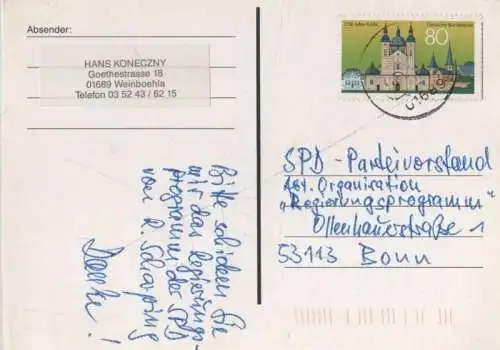 Absender:
HANS KONECZNY
Goethestrasse 18
01689 Weinboehla
Telefon 03 52 43 / 62 15
Bitte schicken Sie
mir das Regierungs-
programm der SPD
von R. Scharping
Danke!
80
SPD - Parteivorstand
Abt. Organisation
„Regierungsprogramm“
Ollenhauerstraße 1
53113 Bonn